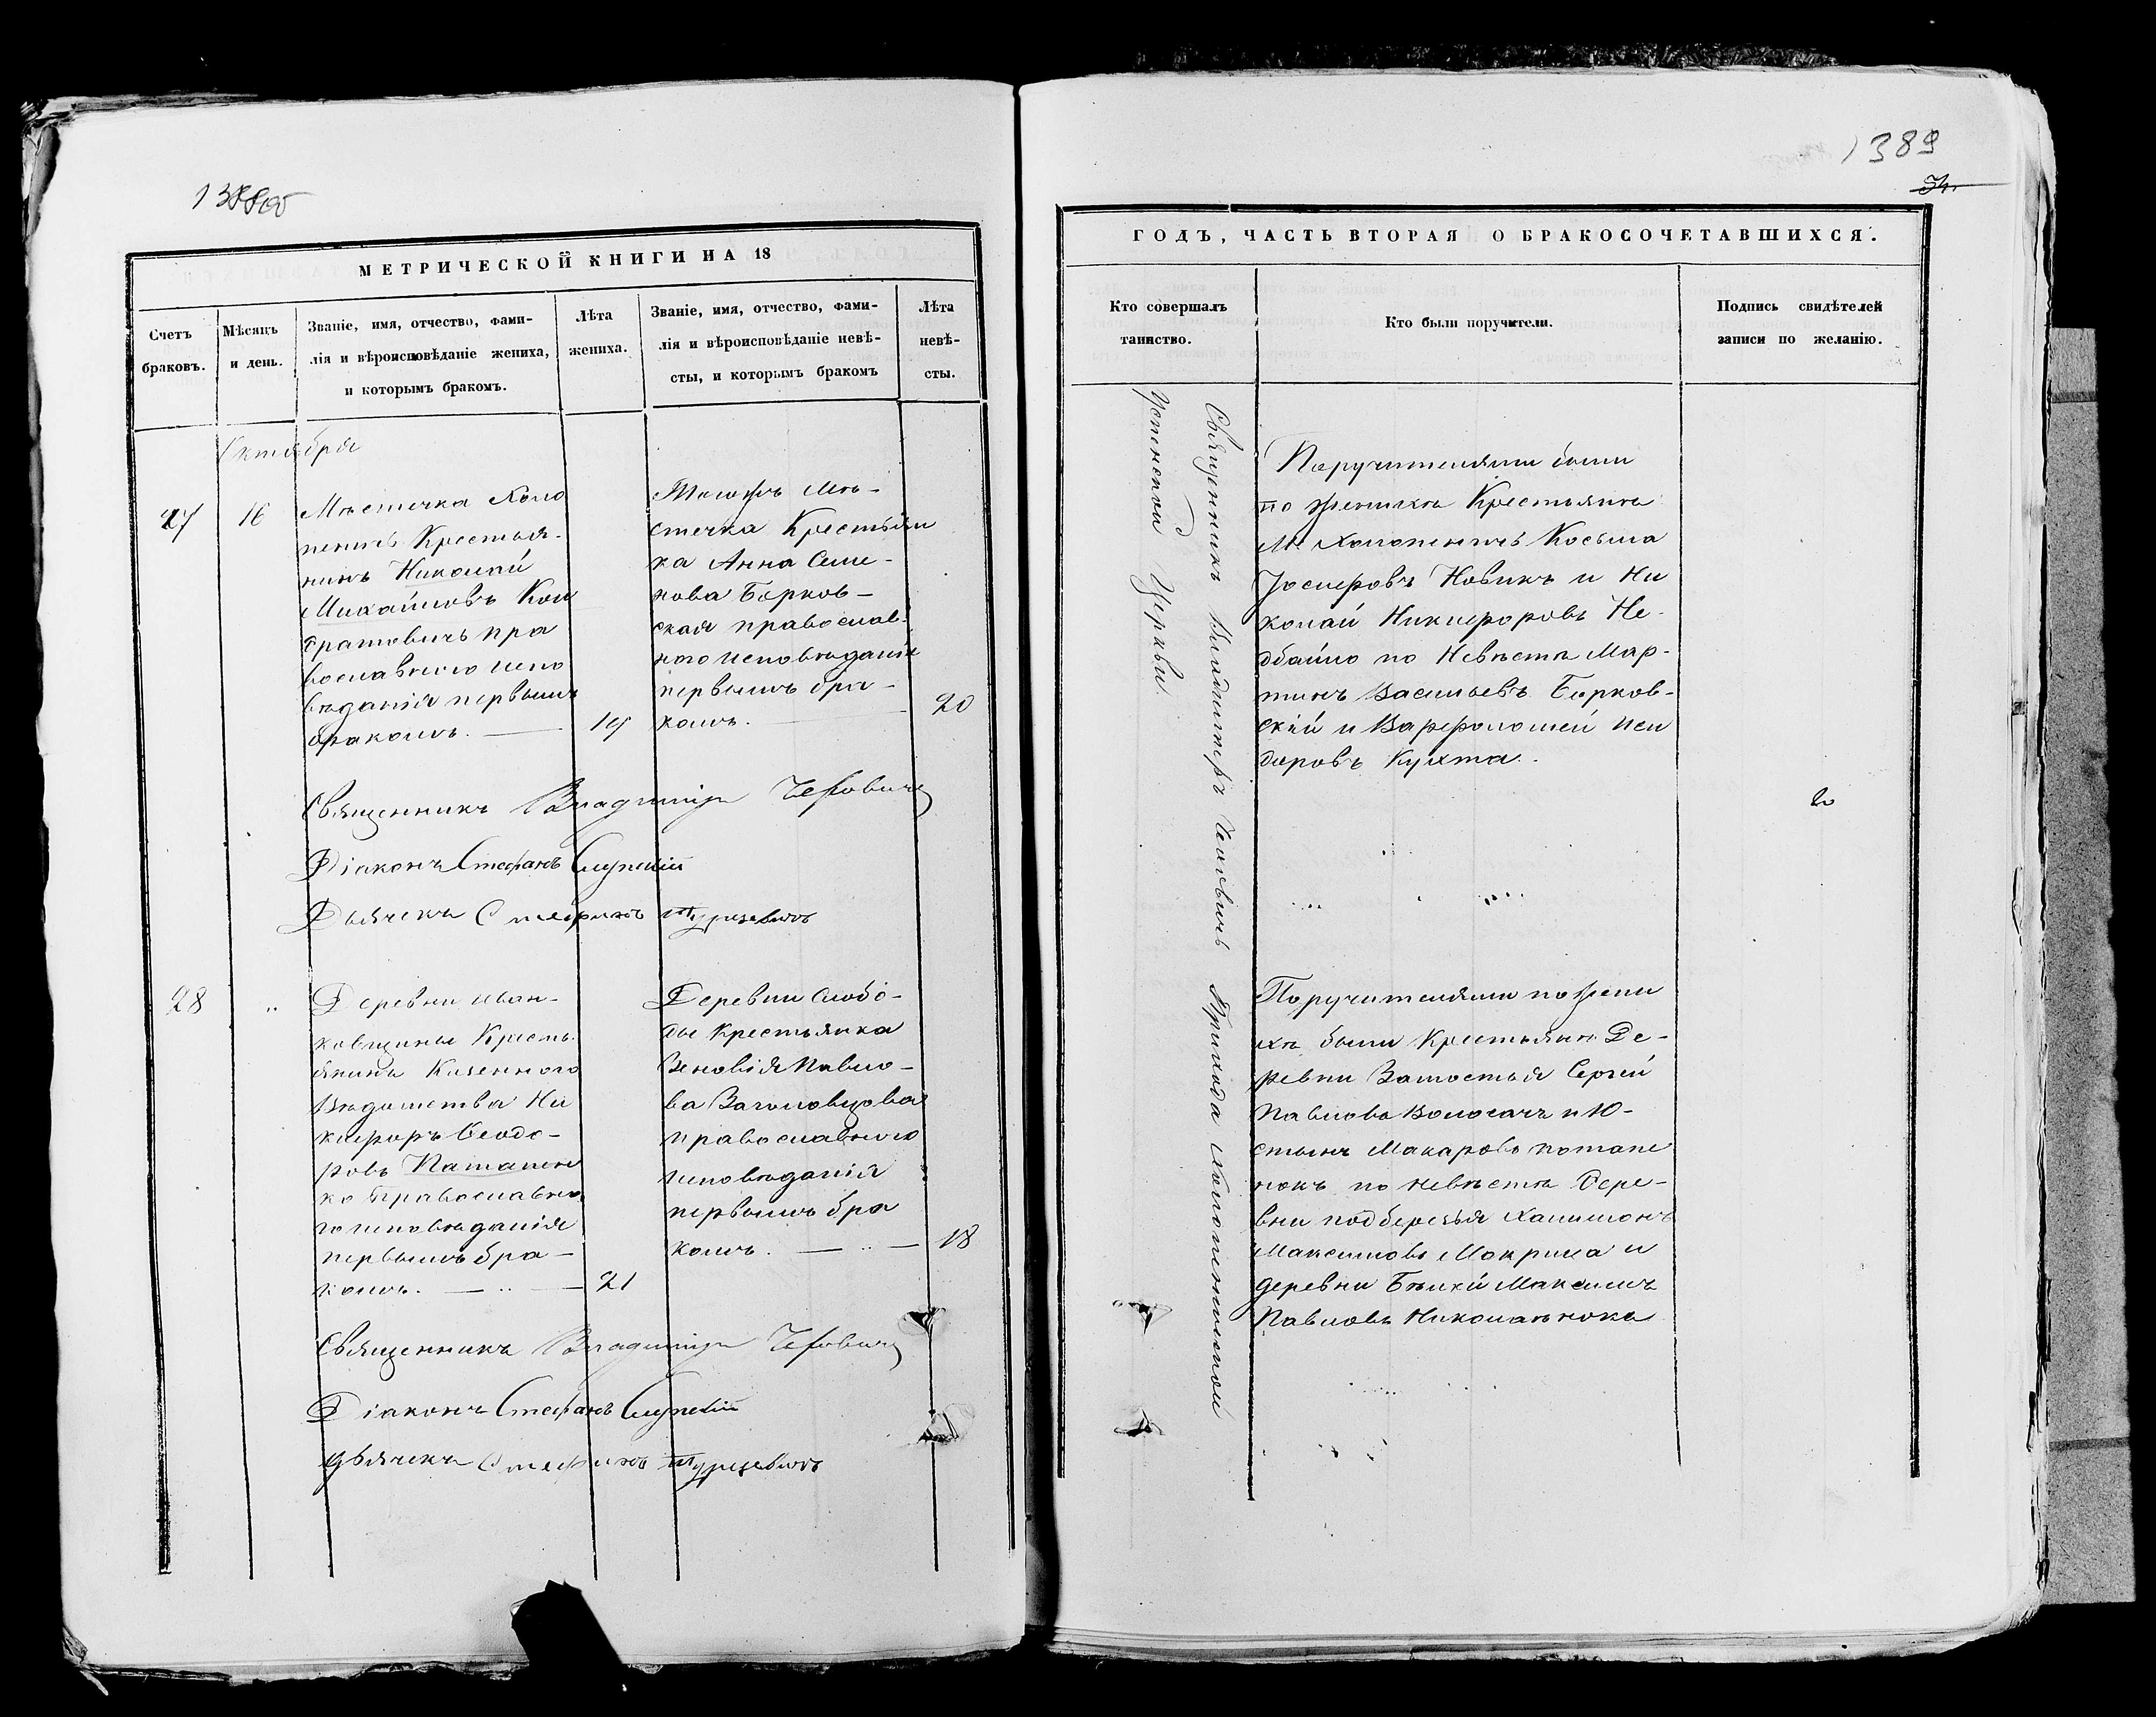 1388об
МЕТРИЧЕСКОЙ КНИГИ НА 18
Счетъ
браковъ.
Мѣсяцъ
и день.
Званіе, имя, отчество, фами-
лія и вѣроисповѣданіе жениха,
и которымъ бракомъ.
Лѣта
жениха.
Званіе, имя, отчество, фами-
лія и вѣроисповѣданіе невѣ-
сты, и которымъ бракомъ
Лѣта
невѣ-
сты.
Октября
27
16
Мѣстечка Холо
пеничь Крестья-
нинъ Николай
Михайловъ Кон
дратовичь пра
вославного испо
вѣданія первымъ
бракомъ.
19
Тогожъ Мѣ-
стечка Крестьян
ка Анна Семе-
нова Борков-
ская православ-
ного исповѣданія
первымъ бра-
комъ.
20
Священникъ Владиміръ
Діаконъ Стефанъ Слупскій
Дьячекъ Стефанъ
28
"
Деревни Иван-
ковщины Кресть
янинъ Казенного
Вѣдомства Ни
кифоръ Ѳеодо-
ровъ Патапен
ко Православно
го исповѣданія
первымъ бра-
комъ. "
21
Деревни Слобо-
ды Крестьянка
Зеновія Павло-
ва
православного
исповѣданія
первымъ бра
комъ. "
18
Священникъ Владиміръ
Діаконъ Стефанъ Слупскій
Дьячекъ Стефанъ
1389
54.
ГОДЪ, ЧАСТЬ ВТОРАЯ О БРАКОСОЧЕТАВШИХСЯ.
Кто совершалъ
таинство.
Кто были поручители.
Подпись свидѣтелей
записи по желанію.
Священникъ Владиміръ Прихода Холопеничской
Успенской Церкви.
Поручителями были
по женихѣ Крестьяне
М. Холопеничь Косьма
Іосифовъ Новикъ и Ни
колай Никифоровъ Не-
дбайло по Невѣстѣ Мар-
тинъ Васильевъ Борков-
скій и Варфоломей Иси
доровъ Кухта.
Поручителями по жени
хѣ были Крестьяне Де-
ревни Замостья Сергѣй
Павловъ Волосачъ и Ю-
стинъ Макаровъ Потапе
нокъ по Невѣстѣ Дере-
вни Подберезья Халимонъ
Максимовъ Мокрица и
деревни Максимъ
Павловъ Николаенокъ